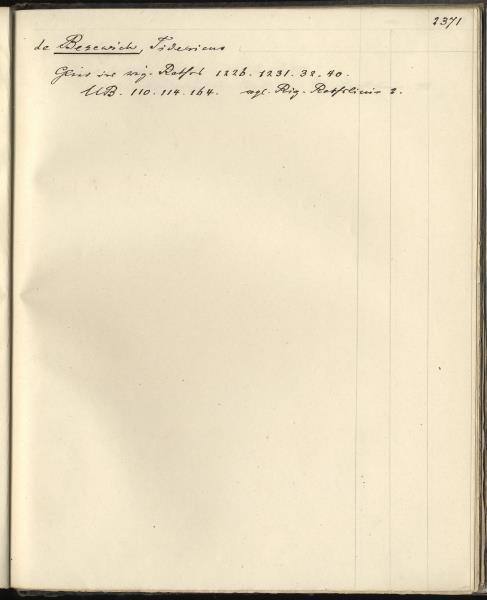 2371
de Besewich, Tidericus
Glied des rig. Raths 1226. 1231. 32. 40.
UB. 110. 114. 164. vgl. Rig. Rathslinie 2.